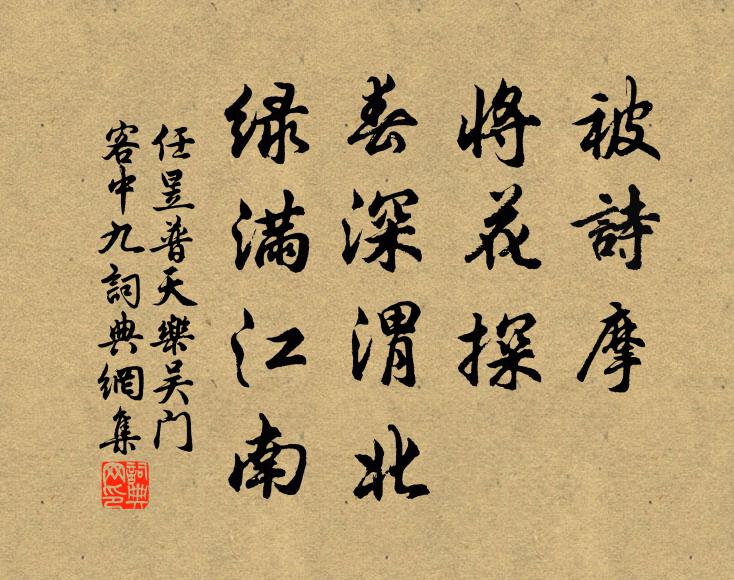 被詩摩
將花探
春深渭北
绿滿江南
任昱普天樂吴门
客中九詞典網集
詞典网印